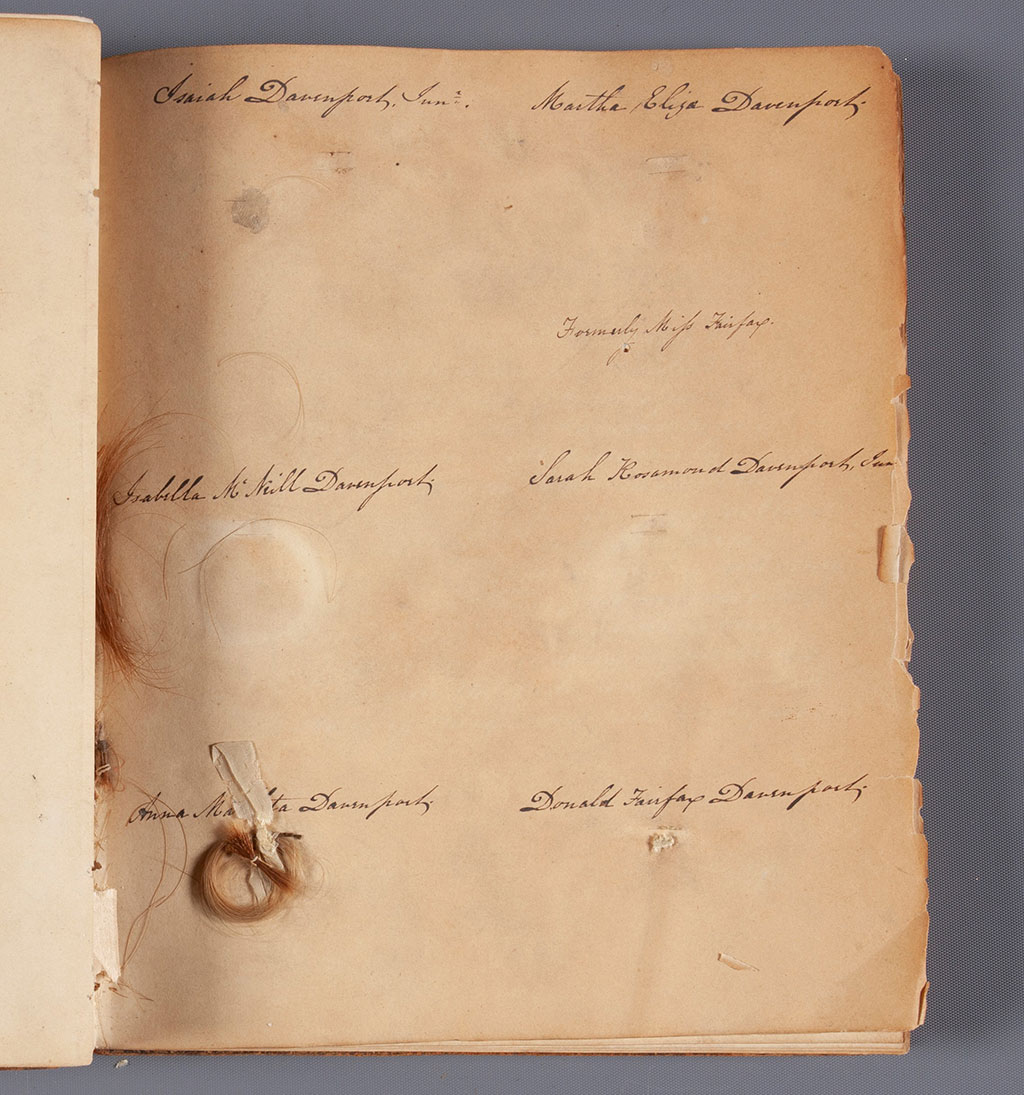 Isaiah Davenport, Junr.
Martha Eliza Davenport.
Formerly Miss Fairfax.
Isabella Mc Neill Davenport.
Sarah Rosamond Davenport, Jun
Anna Davenport.
Donald Fairfax Davenport.